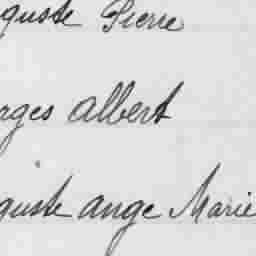 guste Pierre
rges Albert
guste ange Marie